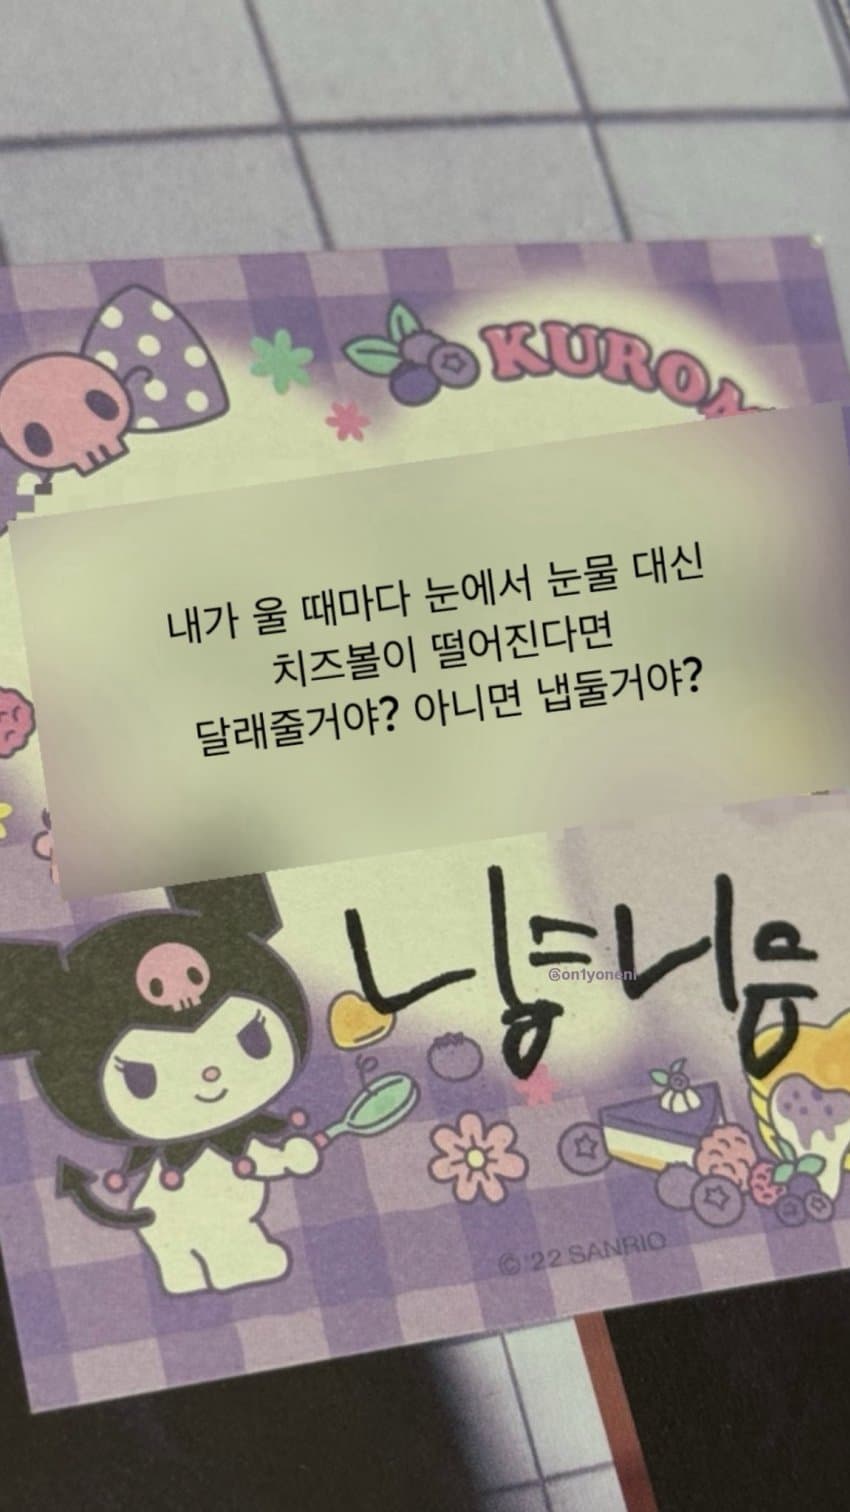 KURO
내가 울 때마다 눈에서 눈물 대신
치즈볼이 떨어진다면
달래줄거야? 아니면 냅둘거야?
냥니음
@on1yoneni
© '22 SANRIO